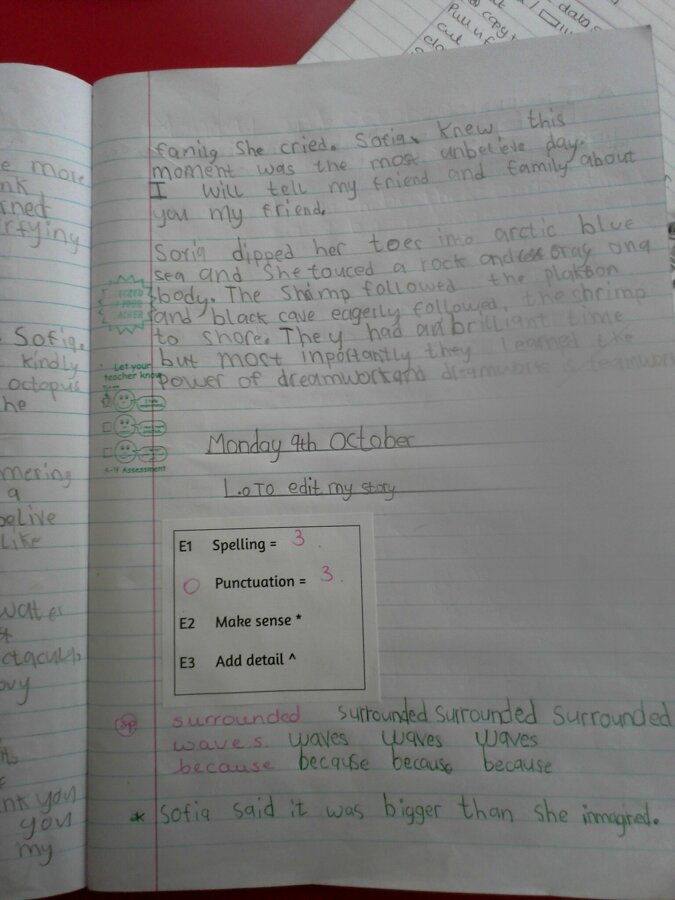 data
copy
Pull
cut
e more
nk
rned
rfying
Sofia.
kindly
octopus
he
mering
a
belive
like
water
ctacula
ovy
nk you
you
my
family She cried. Sofia knew, this
moment was the most unbelieve day.
I will tell my friend and family about
you my friend.
Sofia dipped her toes into arctic blue
sea and She touced a rock and
body. The Shimp followed the plakton
and black cave eagerly followed, the shrimp
to shore. They had an brilliant time
but most inportantly they learned the
power of dreamwork and
Let your
teacher know
Assessment
Monday 9th October
L.O TO edit my story
E1 Spelling = 3
O Punctuation = 3.
E2 Make sense *
E3 Add detail ^
Sp surrounded surrounded surrounded surrounded
waves waves waves waves
because because because because
* Sofia said it was bigger than she inmagined.